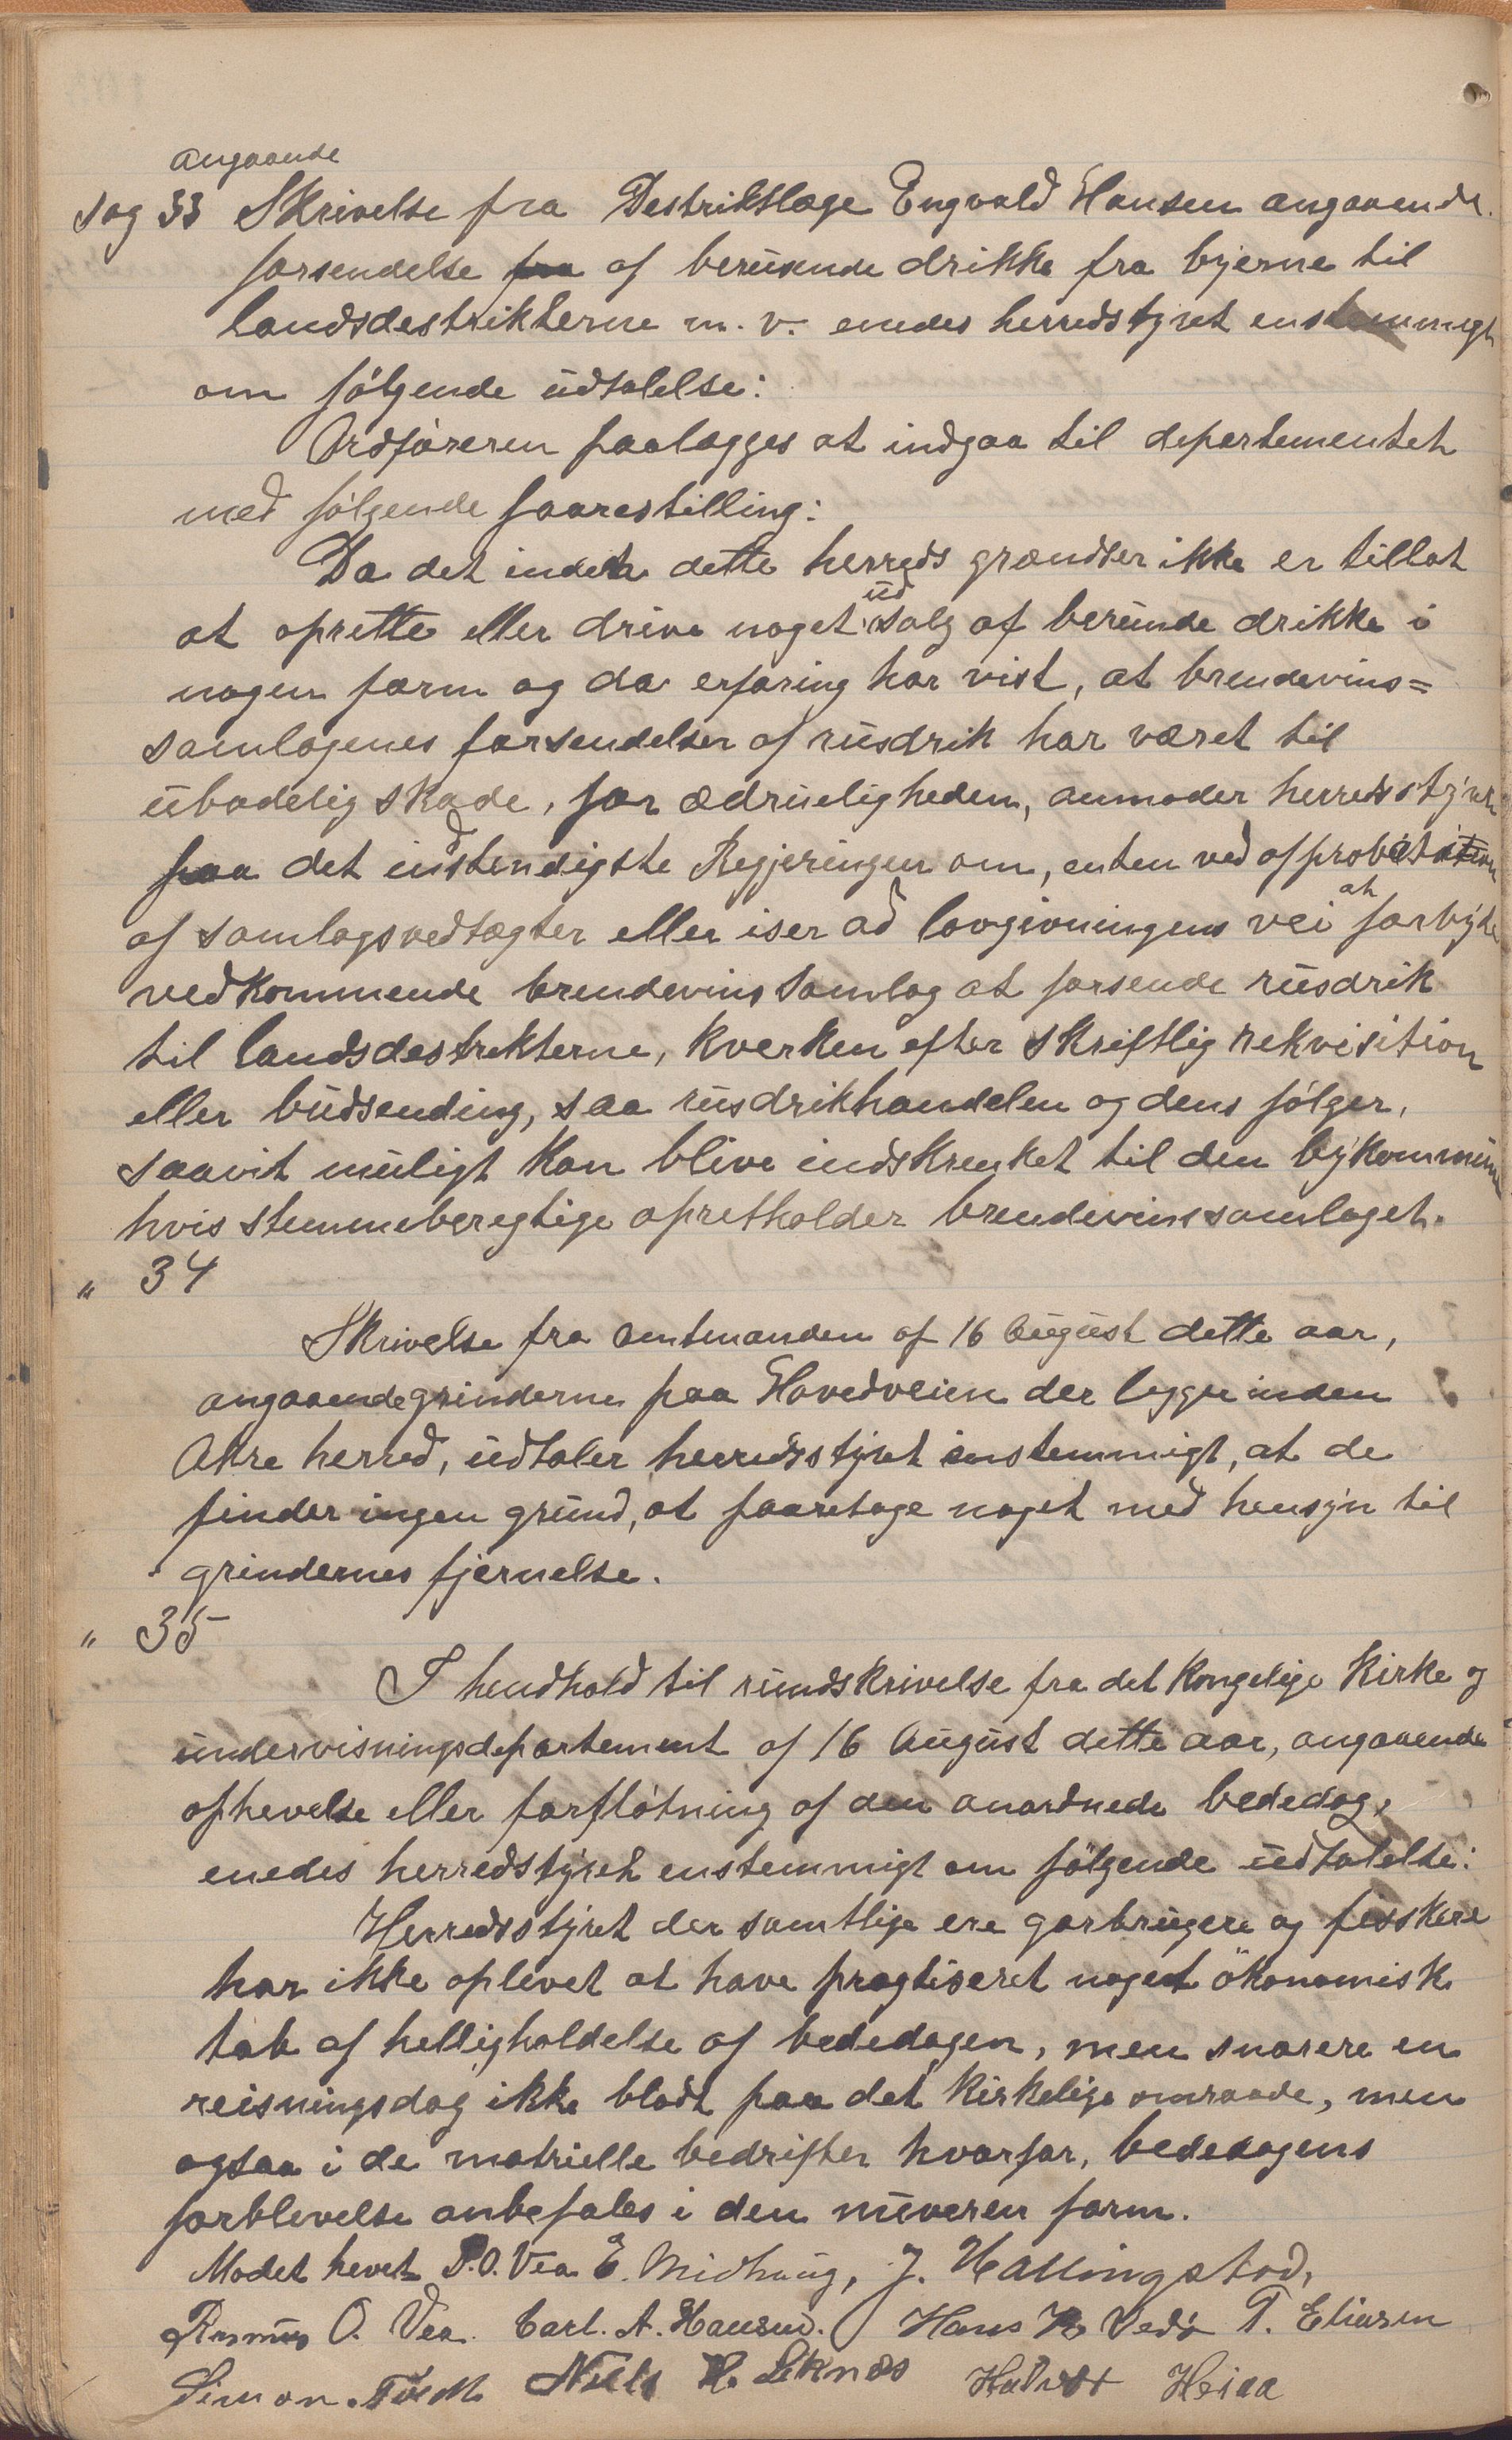 angaaende
Sag 33 Skrivelse fra Destriktslæge Engvald Hansen angaaende
forsendelse fra af berusende drikke fra byerne til
landsdestrikterne m. v. enedes herredstyret enstemmigt
om følgende udtalelse:
Ordføreren paalægges at indgaa til departementet
med følgende foorestilling:
Da det inden dette herreds grændser ikke er tillat
ud
at oprette eller drive noget salg af berunde drikke i
nogen form og da erfaring har vist, at brendevins=
samlagenes forsendelser af rusdrik har været til
ubodelig skade, for ædrueligheden, anmoder herredsstyret
paa det indstendigste Regjeringen om, enten ved approbation
at
af samlagsvedtægter eller iser ad lovgivningens vei forbyde
vedkommende brendevinssamlag at forsende rusdrik
til landsdestrekterne, hverken efter skriftlig rekvisition
eller budsending, saa rusdrikhandelen og dens følger,
saavit muligt kan blive indskrenket til den bykommune
hvis stemmeberegtige opretholder brendevinssamlaget.
" 34
Skrivelse fra amtmanden af 16 August dette aar,
angaaende grinderne paa Hovedveien der ligger inden
Akre herred, udtaler herredsstyret enstemmigt, at de
finder ingen grund, at fooretage noget med hensyn til
grindernes fjernelse.
" 35
I hendhold til rundskrivelse fra det kongelige Kirke og
undervisningsdepartement af 16 August dette aar, angaaende
ophevelse eller forfløtning af den anordnede bededag,
enedes herredstyret enstemmigt om følgende udtalelse:
Herredsstyret der samtlige ere garbrugere og fisskere
har ikke oplevet at have pragtiseret noget økonomisk
tab af helligholdelse af bededagen, men snarere en
reisningsdag ikke blodt paa det kirkelige omraade, men
ogsaa i de matrielle bedrifter hvorfor, bededagens
forblevelse anbefales i den nuveren form.
Modet hevet P.O. Vea E. Midhaug, J. Hallingstad,
Rasmus O. Vea Carl. A. Hansen. Hans H Vedø T. Eliasen
Simon Niels H. Liknes Halvor Heiaa